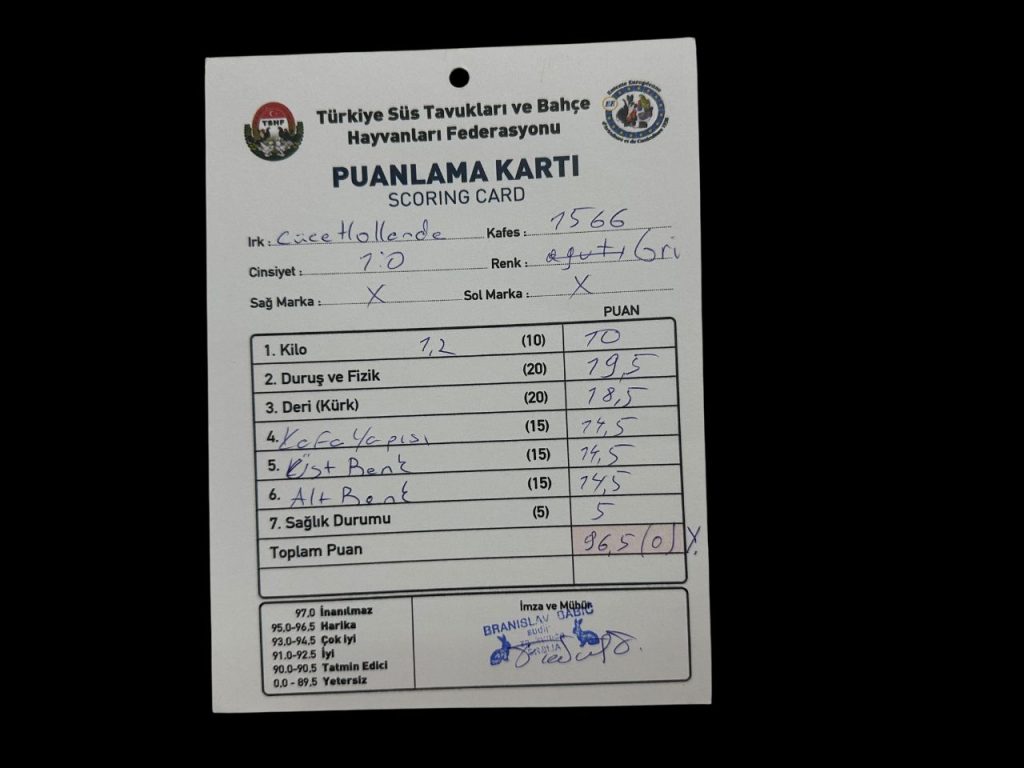 TSHF
Türkiye Süs Tavukları ve Bahçe
Hayvanları Federasyonu
Entente Européenne
EE
PUANLAMA KARTI
SCORING CARD
Irk : Cüce Hollanda Kafes : 1566
Cinsiyet : 1:0 Renk : aguti Gri
Sağ Marka : X Sol Marka : X
PUAN
1. Kilo 1,2 (10) 10
2. Duruş ve Fizik (20) 19,5
3. Deri (Kürk) (20) 18,5
4. Kafa Yapısı (15) 14,5
5. Üst Renk (15) 14,5
6. Alt Renk (15) 14,5
7. Sağlık Durumu (5) 5
Toplam Puan 96,5 (0) X
97,0 İnanılmaz
95.0-96,5 Harika
93.0-94,5 Çok iyi
91.0-92.5 İyi
90.0-90,5 Tatmin Edici
0,0 - 89,5 Yetersiz
İmza ve Mühür
BRANISLAV BABIC